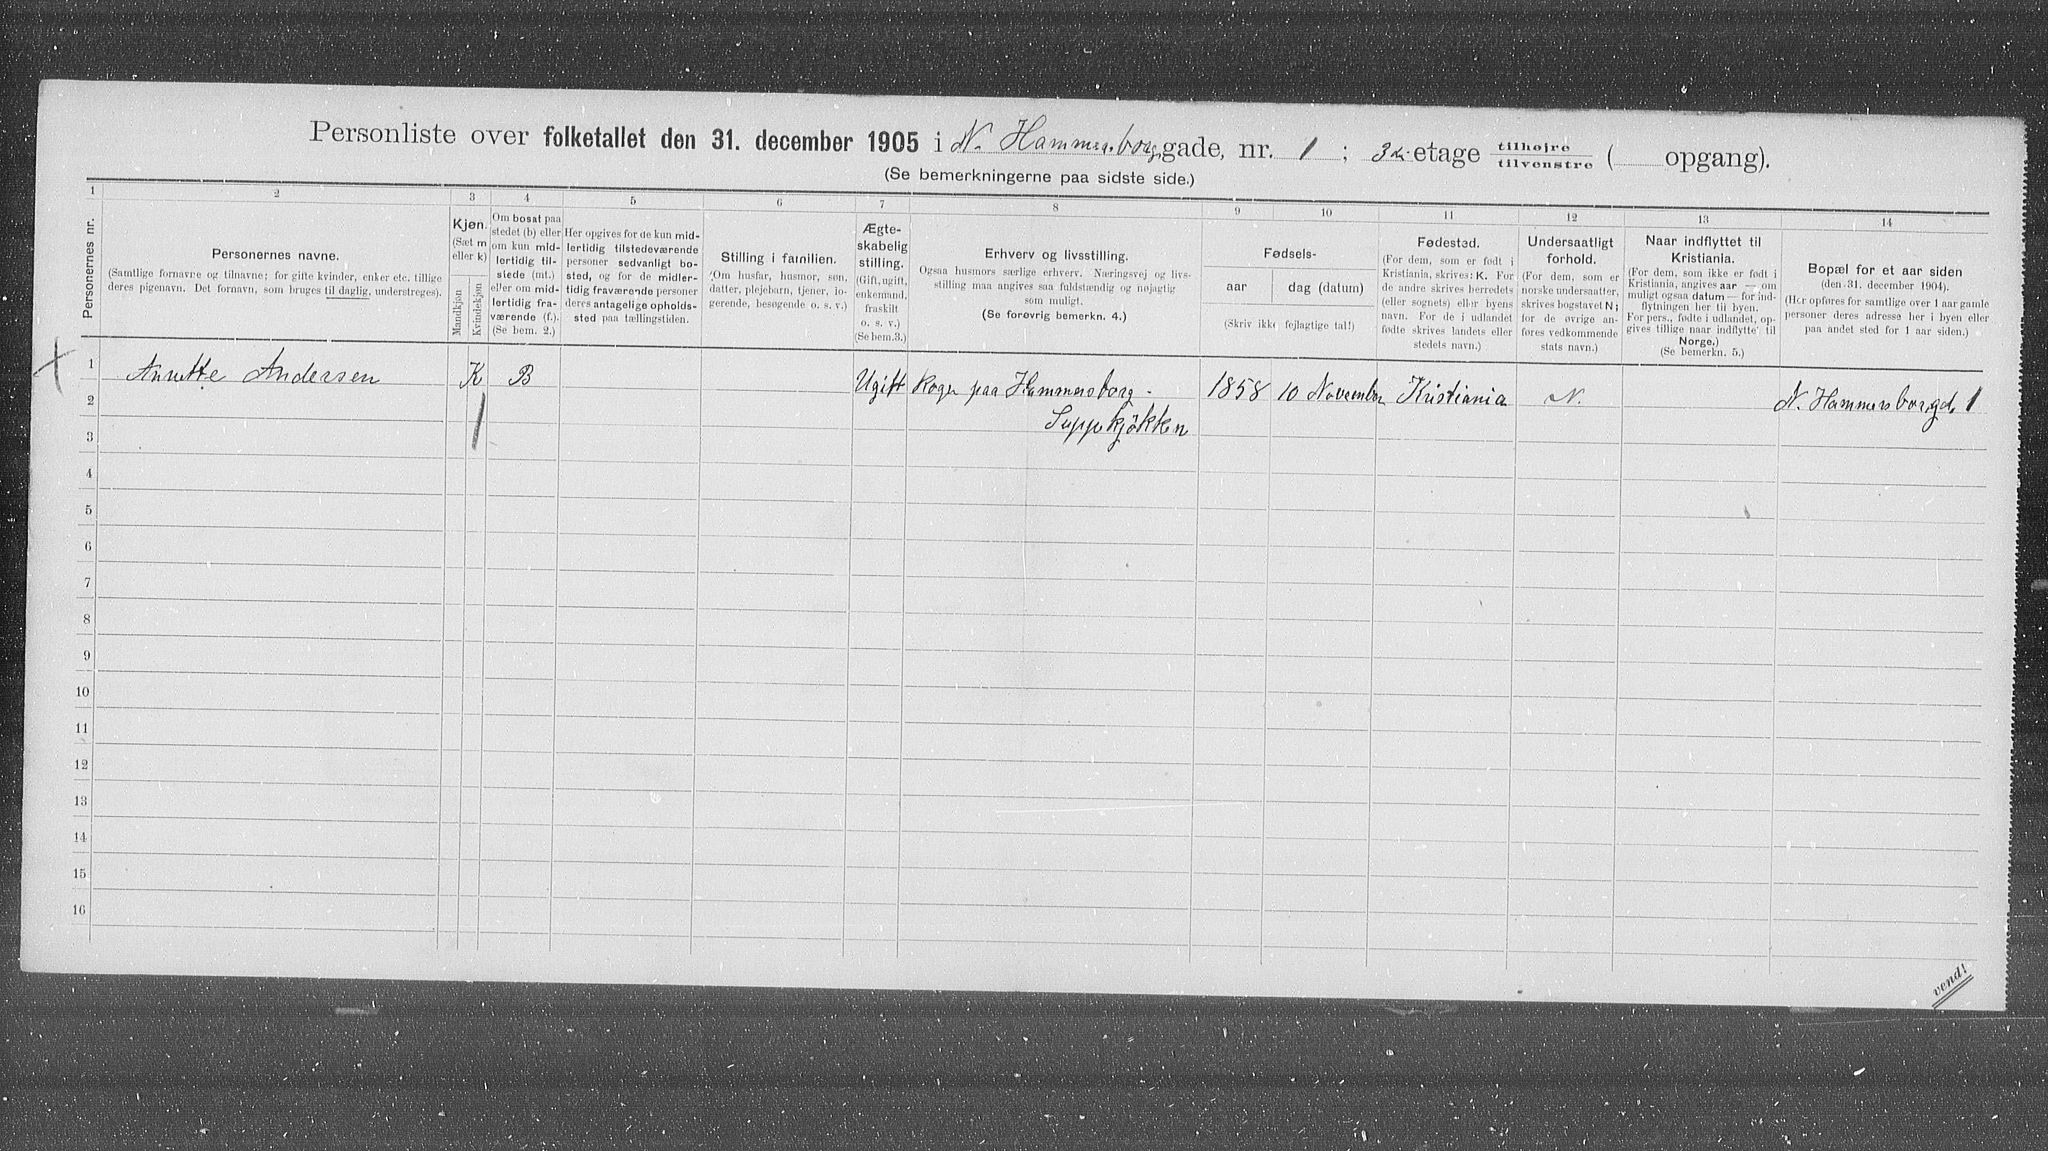 Personliste over folketallet den 31. december 1905 i N. Hammersborg gade, nr. 1 ; 3di etage tilhøjre / tilvenstre ( opgang).
(Se bemerkningerne paa sidste side.)
1 2 3 4 5 6 7 8 9 10 11 12 13 14
Personernes nr.
Personernes navne.
(Samtlige fornavne og tilnavne; for gifte kvinder, enker etc. tillige
deres pigenavn. Det fornavn, som bruges til daglig, understreges).
Kjøn.
(Sæt m
eller k)
Mandkjøn
Kvindekjøn
Om bosat paa
stedet (b) eller
om kun mid-
lertidig til-
stede (mt.)
eller om mid-
lertidig fra-
værende (f.).
(Se bem. 2.)
Her opgives for de kun mid-
lertidig tilstedeværende
personer sedvanligt bo-
sted, og for de midler-
tidig fraværende personer
deres antagelige opholds-
sted paa tællingstiden.
Stilling i familien.
(Om husfar, husmor, søn,
datter, plejebarn, tjener, lo-
gerende, besøgende o. s. v.)
Ægte-
skabelig
stilling.
(Gift, ugift,
enkemand,
fraskilt
o. s. v.)
(Se bem.3.)
Erhverv og livsstilling.
Ogsaa husmors særlige erhverv. Næringsvej og livs-
stilling maa angives saa fuldstændig og nøjagtig
som muligt.
(Se forøvrig bemerkn. 4.)
Fødsels-
aar
dag (datum)
(Skriv ikke fejlagtige tal!)
Fødested.
(For dem, som er født i
Kristiania, skrives: K. For
de andre skrives herredets
(eller sognets) eller byens
navn. For de i udlandet
fødte skrives landets eller
stedets navn.)
Undersaatligt
forhold.
(For dem, som er
norske undersaatter,
skrives bogstavet N;
for de øvrige an-
føres vedkommende
stats navn.)
Naar indflyttet til
Kristiania.
(For dem, som ikke er født i
Kristiania, angives aar — om
muligt ogsaa datum — for ind-
flytningen her til byen.
For pers., født i udlandet, op-
gives tillige naar indflyttet til
Norge.)
(Se bemerkn. 5.)
Bopæl for et aar siden
(den 31. december 1904).
(Her opføres for samtlige over 1 aar gamle
personer deres adresse her i byen eller
paa andet sted for 1 aar siden.)
1 Annette Andersen K B Ugift Koger paa Hammersborg - 1858 10 November Kristiania N. N. Hammersborggd. 1
2 Suppekjökken
3
4
5
6
7
8
9
10
11
12
13
14
15
16
vend!